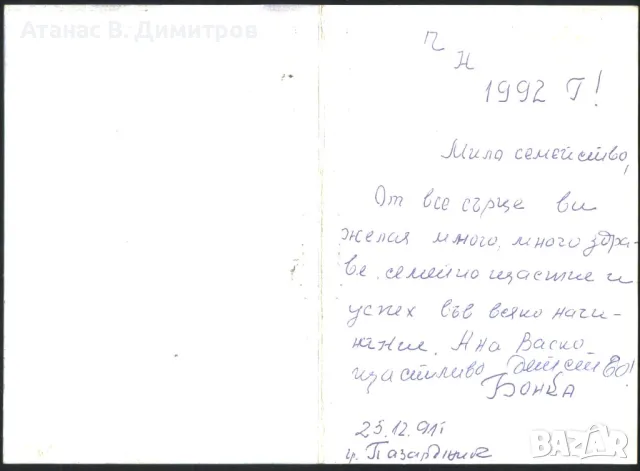 Атанас В. Димитров
Ч
Н
1992 Г!
Мила семейство,
От все сърце ви
желая много, много здра-
ве, семейно щастие и
успех във всяко начи-
нание. А на Васко
щастливо детство!
Бонка
25.12.91г
гр. Пазарджик
BAZAR